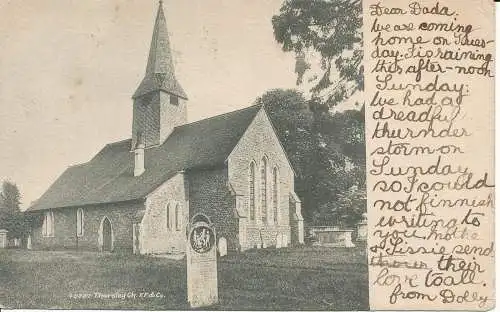 Dear Dada.
We are coming
home on Tues-
day. Tis raining
this after-noon
Sunday.
We had a
dreadful
thurnder
storm on
Sunday
so I could
not finnish
writing to
you. Mothe
& Lissie send
their
love to all.
from Dolly
40222 Thursley Ch. F.F. & Co.